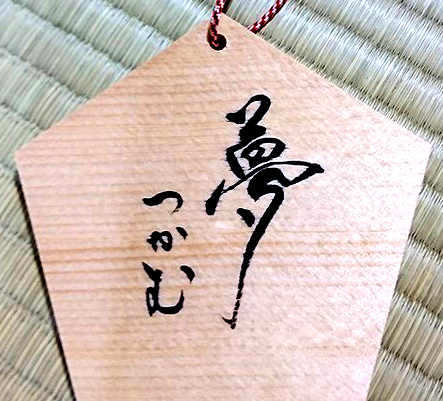 夢
つかむ